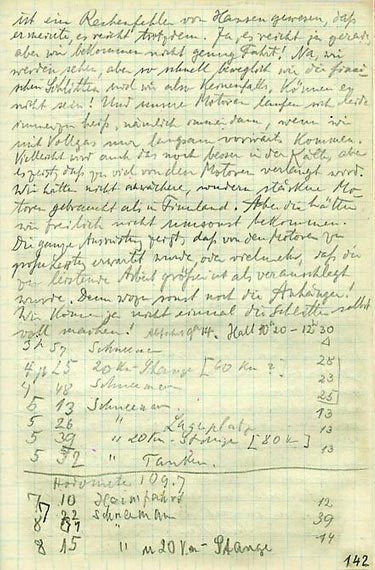 ist ein Rechenfehler von Hansen gewesen, daß
er meinte, es reicht trotzdem. Ja, es reicht ja gerade,
aber wir bekommen nicht genug Fahrt! Na, wir
werden sehen, aber so schnell beweglich wie die
schen Schlitten sind wir also keinesfalls, können es
nicht sein! Und unsere Motoren laufen sich leider
immer zu heiß, nämlich immer dann, wenn wir
mit Vollgas nur langsam vorwärts kommen.
Vielleicht wird auch das noch besser in der Kälte, aber
es zeigt, daß zu viel von den Motoren verlangt wird.
Wir hätten nicht schwächere, sondern stärkere Mo-
toren gebraucht als in Finnland. Aber die hätten
wir freilich nicht umsonst bekommen.
Die ganze zeigt, daß von den Motoren zu
großes erwartet wurde oder vielmehr, daß die
zu leistende Arbeit größer ist als veranschlagt
wurde. Denn wozu sonst noch die Anhänger!
Wir können ja nicht einmal die Schlitten selbst
voll machen! 14. Halt 10 20 - 12 30
3 57 Schneeman
4 25 20 Km-Stange [60 Km?] 28
4 48 Schneeman 23
5 13 Schneeman. 25
5 26 " Lagerplatz 13
5 39 " 20 Km-Stange [80 Km] 13
5 52 " Tanken. 13
Hodometer 109.7
7 10
7 22 Schneeman 12
8 01 " 39
8 15 " u 20 Km-Stange 14
142